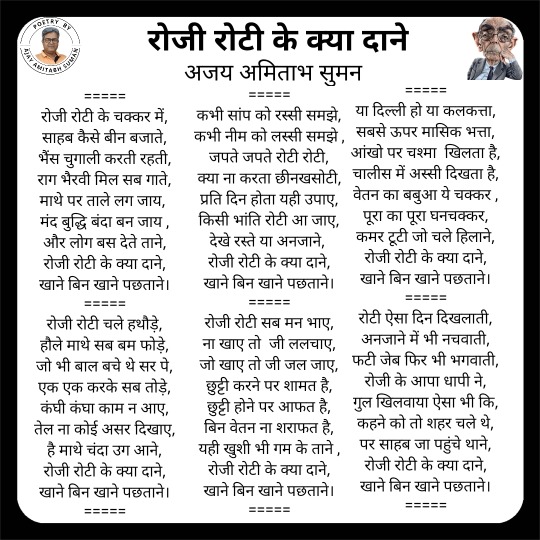 POETRY BY
AJAY AMITABH SUMAN
रोजी रोटी के क्या दाने
अजय अमिताभ सुमन
=====
रोजी रोटी के चक्कर में,
साहब कैसे बीन बजाते,
भैंस चुगाली करती रहती,
राग भैरवी मिल सब गाते,
माथे पर ताले लग जाय,
मंद बुद्धि बंदा बन जाय ,
और लोग बस देते ताने,
रोजी रोटी के क्या दाने,
खाने बिन खाने पछताने।
=====
रोजी रोटी चले हथौड़े,
हौले माथे सब बम फोड़े,
जो भी बाल बचे थे सर पे,
एक एक करके सब तोड़े,
कंघी कंघा काम न आए,
तेल ना कोई असर दिखाए,
है माथे चंदा उग आने,
रोजी रोटी के क्या दाने,
खाने बिन खाने पछताने।
=====
=====
कभी सांप को रस्सी समझे,
कभी नीम को लस्सी समझे ,
जपते जपते रोटी रोटी,
क्या ना करता छीनखसोटी,
प्रति दिन होता यही उपाए,
किसी भांति रोटी आ जाए,
देखे रस्ते या अनजाने,
रोजी रोटी के क्या दाने,
खाने बिन खाने पछताने।
=====
रोजी रोटी सब मन भाए,
ना खाए तो  जी ललचाए,
जो खाए तो जी जल जाए,
छुट्टी करने पर शामत है,
छुट्टी होने पर आफत है,
बिन वेतन ना शराफत है,
यही खुशी भी गम के ताने ,
रोजी रोटी के क्या दाने,
खाने बिन खाने पछताने।
=====
=====
या दिल्ली हो या कलकत्ता,
सबसे ऊपर मासिक भत्ता,
आंखो पर चश्मा  खिलता है,
चालीस में अस्सी दिखता है,
वेतन का बबुआ ये चक्कर ,
पूरा का पूरा घनचक्कर,
कमर टूटी जो चले हिलाने,
रोजी रोटी के क्या दाने,
खाने बिन खाने पछताने।
=====
रोटी ऐसा दिन दिखलाती,
अनजाने में भी नचवाती,
फटी जेब फिर भी भगवाती,
रोजी के आपा धापी ने,
गुल खिलवाया ऐसा भी कि,
कहने को तो शहर चले थे,
पर साहब जा पहुंचे थाने,
रोजी रोटी के क्या दाने,
खाने बिन खाने पछताने।
=====